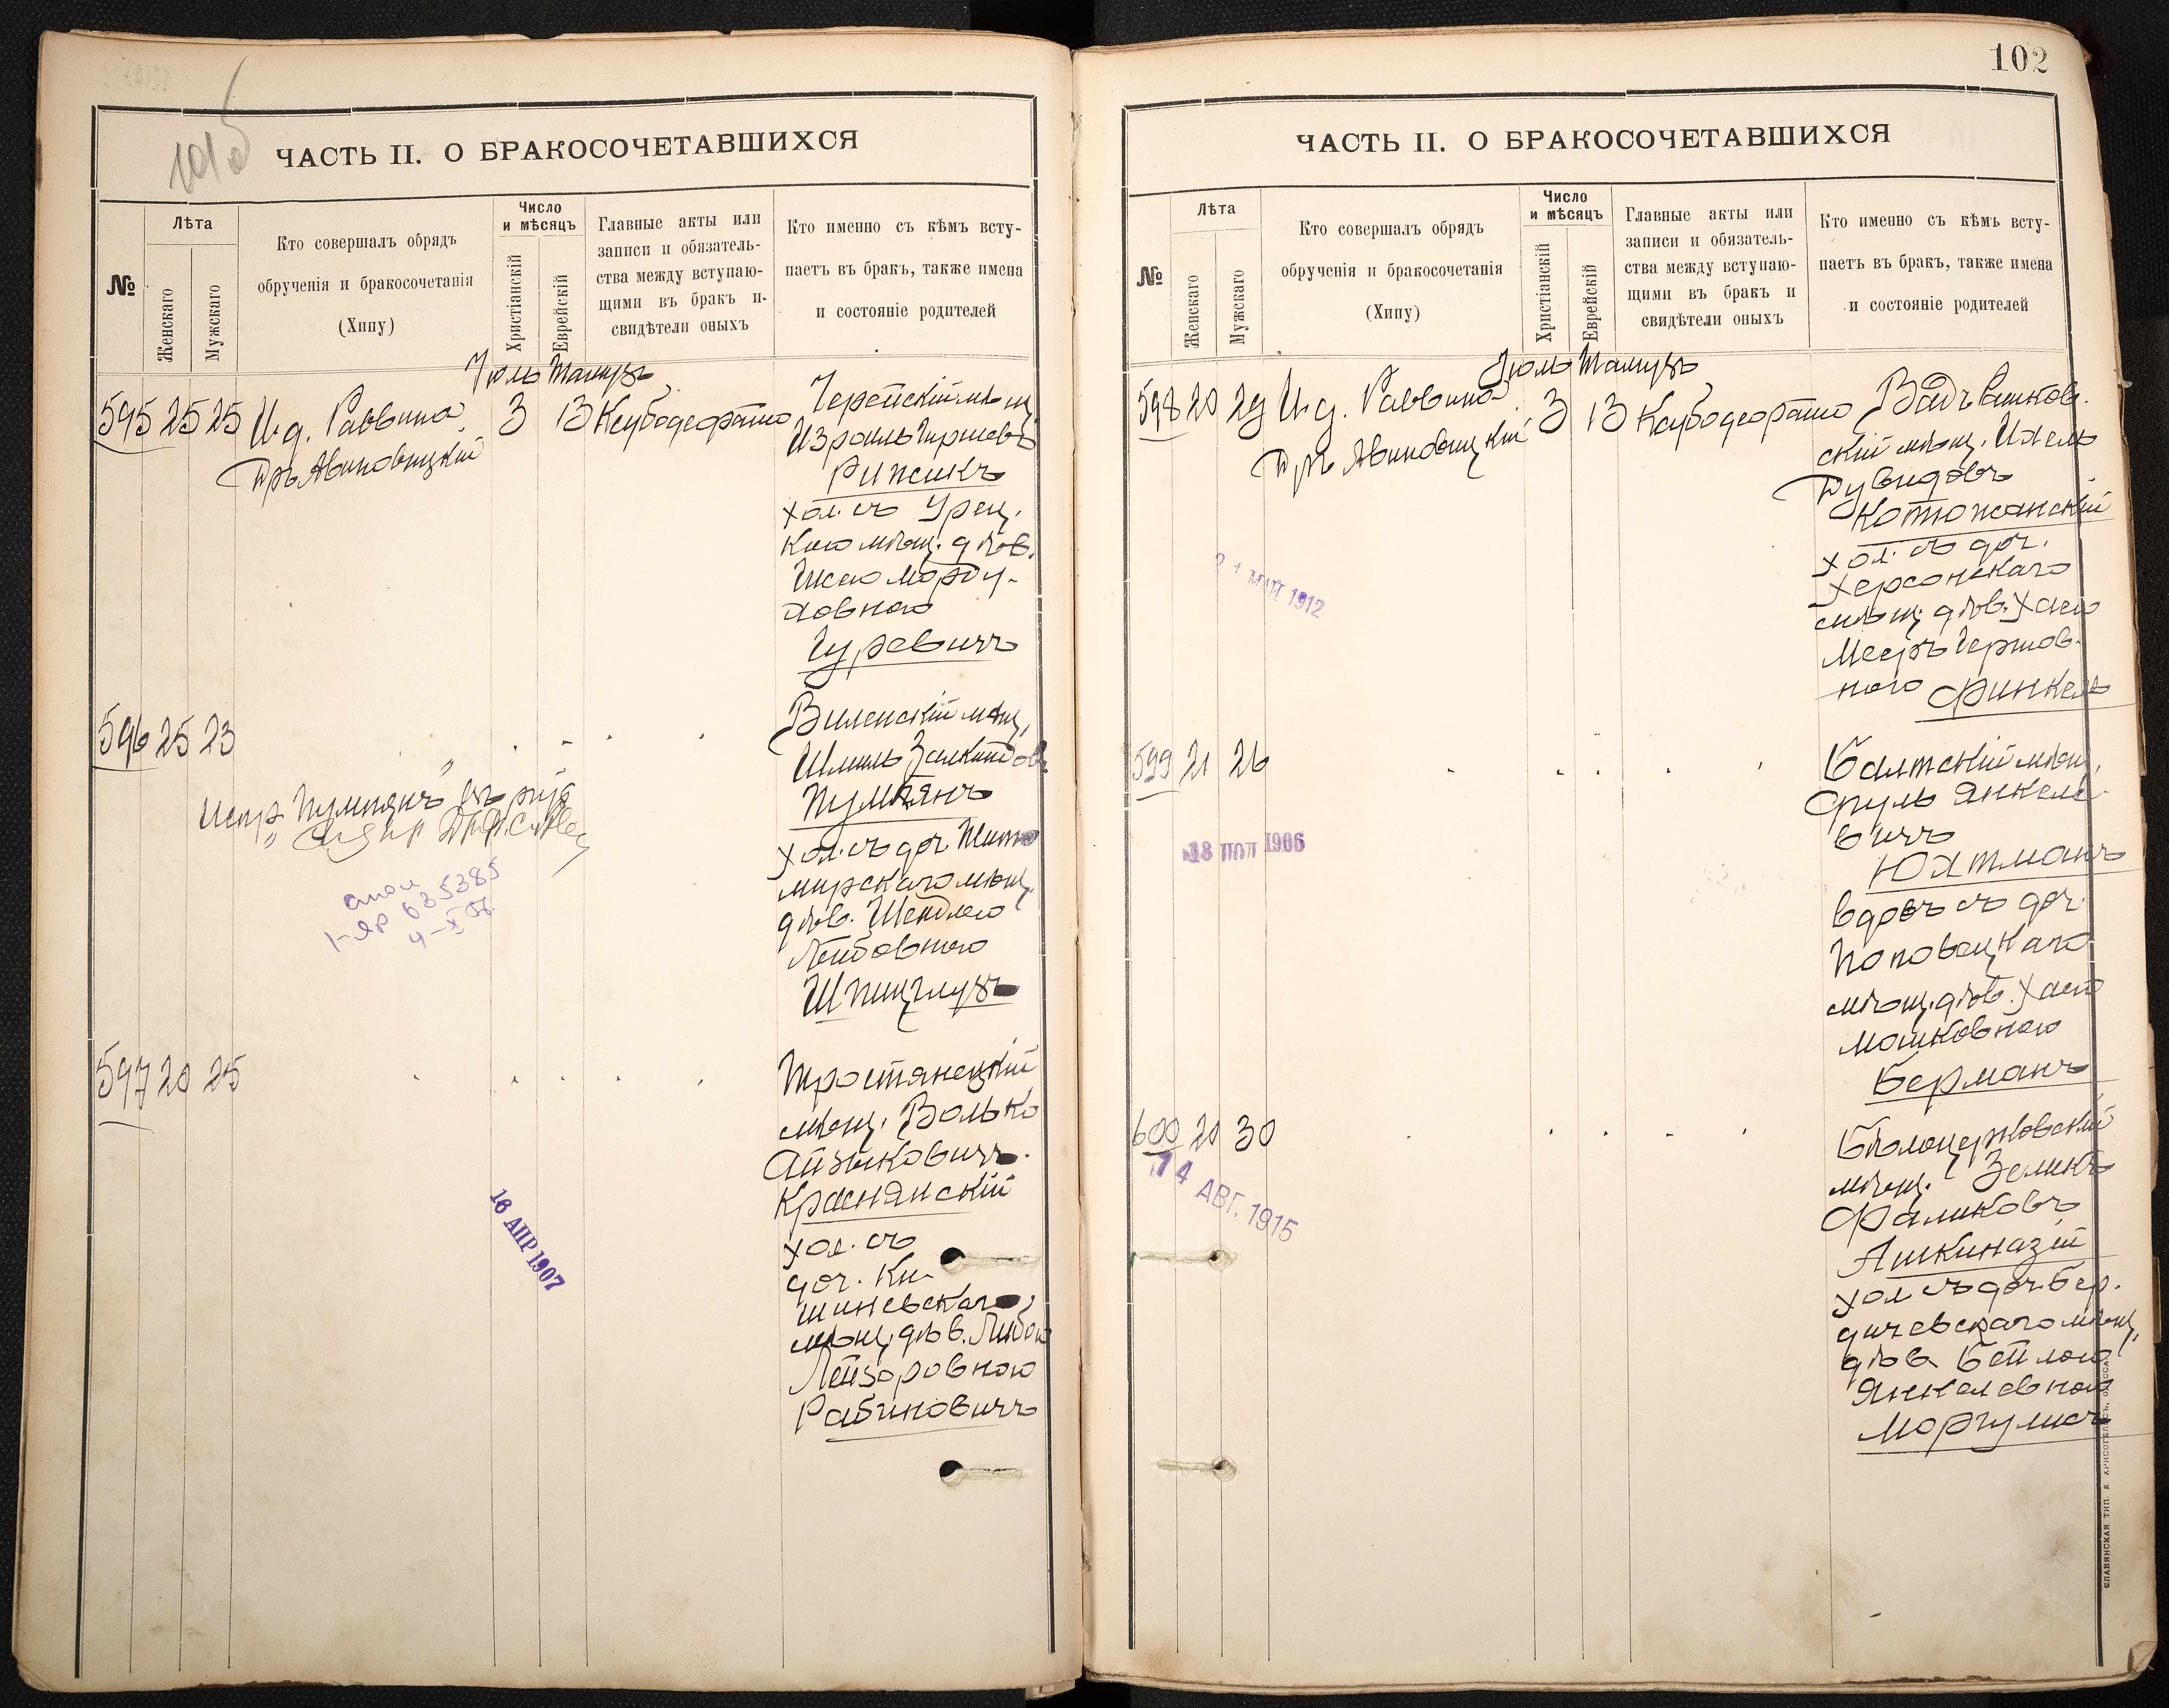 ЧАСТЬ II. О БРАКОСОЧЕТАВШИХСЯ
№
Лѣта
Женскаго
Мужскаго
Кто совершалъ обрядъ
обрученія и бракосочетанія
(Хипу)
Число
и мѣсяцъ
Христіанскій
Еврейскій
Главные акты или
записи и обязатель-
ства между вступаю-
щими въ бракъ и
свидѣтели оныхъ
Кто именно съ кѣмъ всту-
паетъ въ бракъ, также имена
и состояніе родителей
Іюль Тамузъ
595 25 25 И.д. Раввина 3 13
Д-ръ Авиновицкій
Черейскій мѣщ.
Израиль Гиршевъ
Рижикъ
хол. съ Урец.
кою мѣщ. дѣв.
Морду-
ховною
Гуревичъ
596 25 23
Виленскій мѣщ.
Шмиль Залкиндов
Пумпянъ
хол. съ доч. Жито
мирскаго мѣщ.
дѣв. Шендлею
Лейбовною
Шпицглузъ
Испр. "Пумпянъ"
1-ЯР 635385
4-X-56
597 20 25
Тростянецкій
мѣщ. Волько
Айзиковичъ
Краснянскій
хол. съ
доч. Ки-
шиневскаго
мѣщ. дѣв. Либою
Лейзоровною
Рабиновичъ
16 АПР 1907
102
ЧАСТЬ II. О БРАКОСОЧЕТАВШИХСЯ
№
Лѣта
Женскаго
Мужскаго
Кто совершалъ обрядъ
обрученія и бракосочетанія
(Хипу)
Число
и мѣсяцъ
Христіанскій
Еврейскій
Главные акты или
записи и обязатель-
ства между вступаю-
щими въ бракъ и
свидѣтели оныхъ
Кто именно съ кѣмъ всту-
паетъ въ бракъ, также имена
и состояніе родителей
Іюль Тамузъ
598 20 29 И.д. Раввина 3 13
Д-ръ Авиновицкій
Вадъ Рашков.
скій мѣщ. Ихель
Дувидовъ
Котожанскій
хол. съ доч.
Херсонскаго
мѣщ. дѣв. Хаею
Мееръ Гершов-
ною Финкель
21 МАЙ 1912
599 21 26
Балтскій мѣщ.
Сруль Янкеле-
вичъ
Юхтманъ
вдовъ съ доч.
Поповецкаго
мѣщ. дѣв. Хаею
Мошковною
Берманъ
1906
600 20 30
Бѣлоцерковскій
мѣщ. Зеликъ
Фаликовъ
Ашкиназій
хол съ доч. Бер-
дичевскаго мѣщ.
дѣв. Бейлою
Янкелевною
Моргулисъ
14 АВГ. 1915
СЛАВЯНСКАЯ ТИП. Е ХРИСОГЕЛОСЪ, ОДЕССА